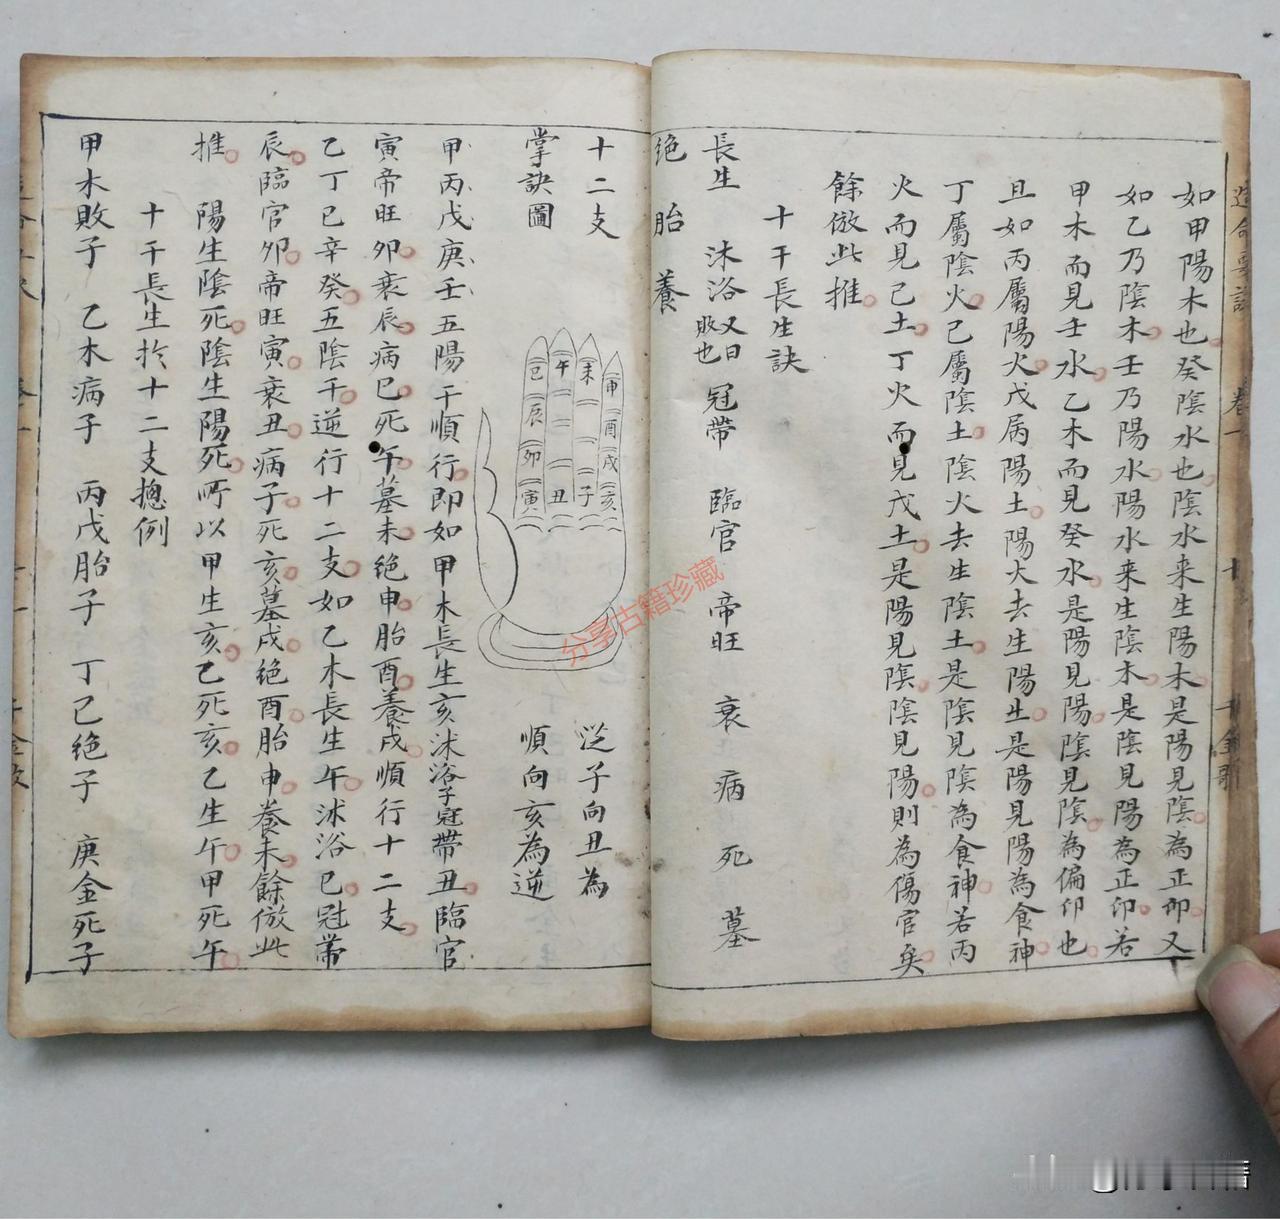 如甲陽木也癸陰水也陰水来生陽木是陽見陰為正印又
如乙乃陰木壬乃陽水陽水来生陰木是陰見陽為正印若
甲木而見壬水乙木而見癸水是陽見陽陰見陰為偏印也
且如丙屬陽火戊屬陽土陽火去生陽土是陽見陽為食神
丁屬陰火己屬陰土陰火去生陰土是陰見陰為食神若丙
火而見己土丁火而見戊土是陽見陰陰見陽則為傷官矣
餘倣此推
十干長生訣
長生 沐浴又曰敗也 冠帶 臨官 帝旺 衰 病 死 墓
絶 胎 養
十二支
掌訣圖
申 酉 戌 亥
未 子
午 丑
巳 辰 卯 寅
從子向丑為
順向亥為逆
甲丙戊庚壬五陽干順行即如甲木長生亥沐浴子冠帶丑臨官
寅帝旺卯衰辰病巳死午墓未絶申胎酉養戌順行十二支
乙丁巳辛癸五陰干逆行十二支如乙木長生午沐浴巳冠帶
辰臨官卯帝旺寅衰丑病子死亥墓戌絶酉胎申養未餘倣此
推 陽生陰死陰生陽死所以甲生亥乙死亥乙生午甲死午
十干長生於十二支揔例
甲木敗子 乙木病子 丙戊胎子 丁己絶子 庚金死子
分享古籍珍藏